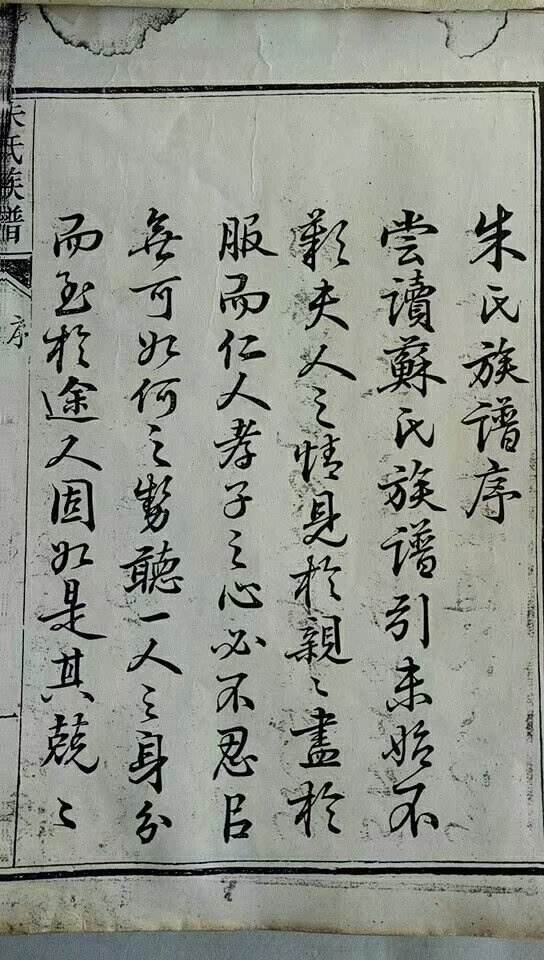 朱氏族譜序
嘗讀蘇氏族譜引未始不
歎夫人之情見於親〻盡於
服而仁人孝子之心必不忍㠯
無可如何之勢聽一人之身分
而至於途人固如是其兢〻
朱氏族譜
序
一